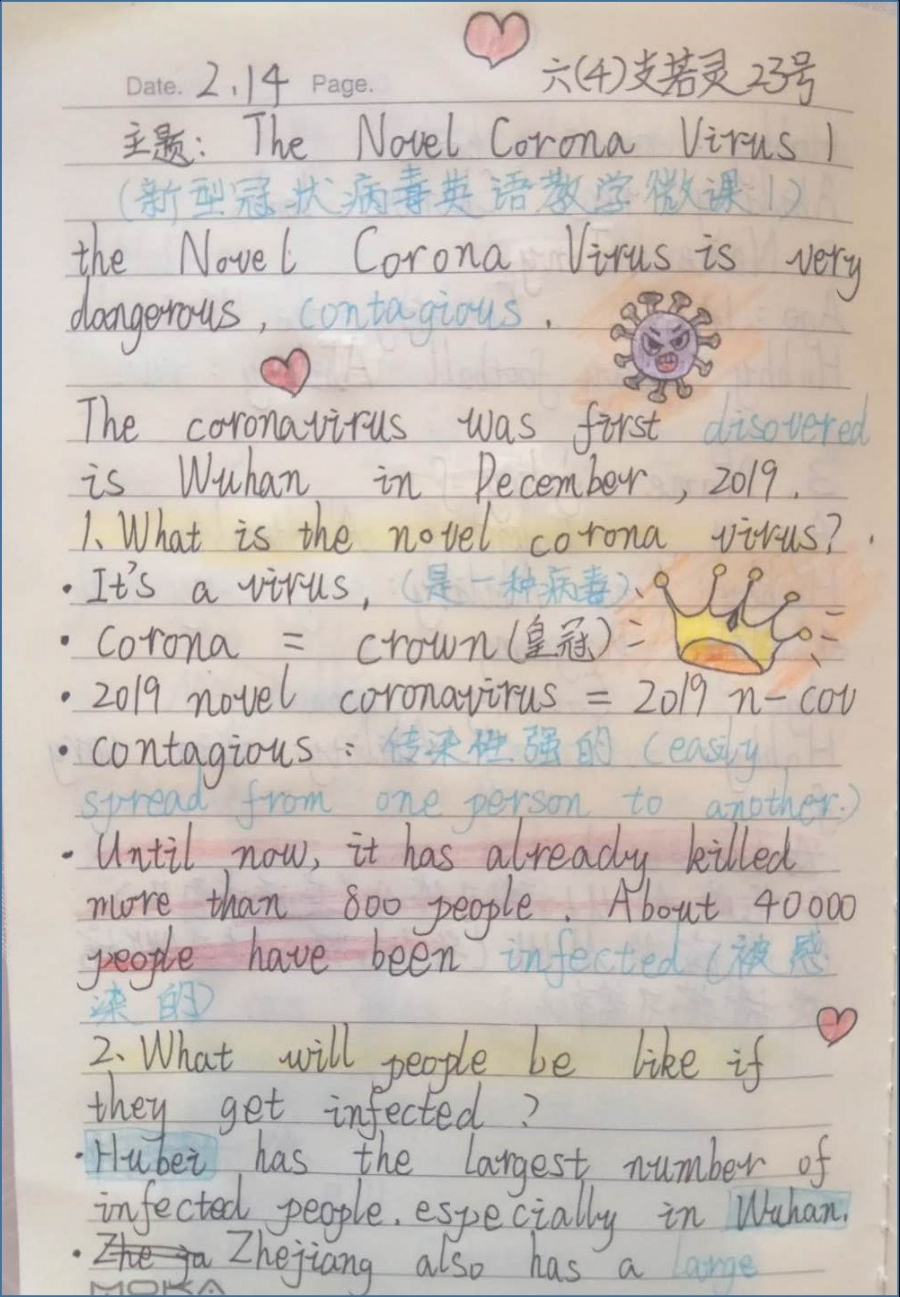 Date. 2.14 Page. 六(4)支若灵 23号
主题: The Novel Corona Virus 1
(新型冠状病毒英语教学微课1)
the Novel Corona Virus is very
dangerous, contagious.
The coronavirus was first disovered
is Wuhan in December, 2019.
1、What is the novel corona virus?
• It's a virus, (是一种病毒)、
• corona = crown(皇冠)
• 2019 novel coronavirus = 2019 n-cov
• contagious: 传染性强的 (easily
spread from one person to another.)
• Until now, it has already killed
more than 800 people. About 40000
people have been infected (被感
染的)
2、What will people be like if
they get infected?
• Hubei has the largest number of
infected people. especially in Wuhan.
• Zhe ja Zhejiang also has a large
MOKA